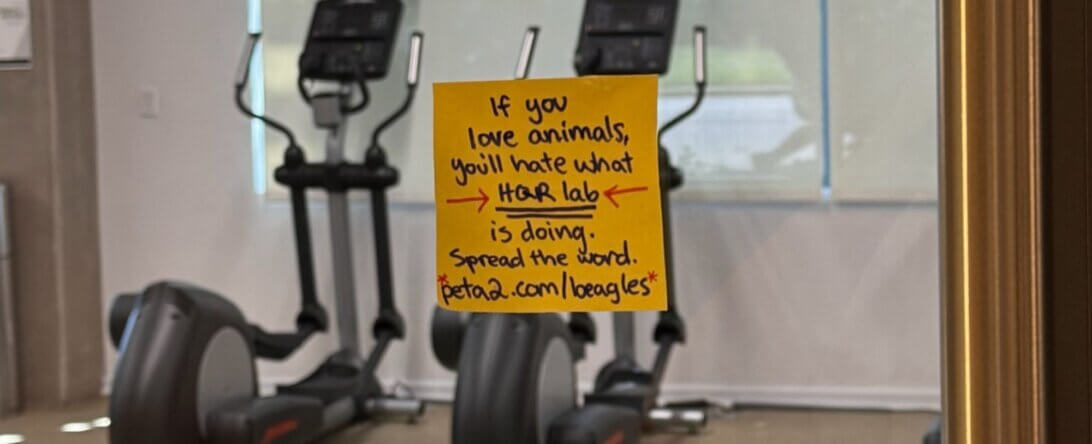 If you
love animals,
you'll hate what
→ HQR lab ←
is doing.
Spread the word.
*peta2.com/beagles*